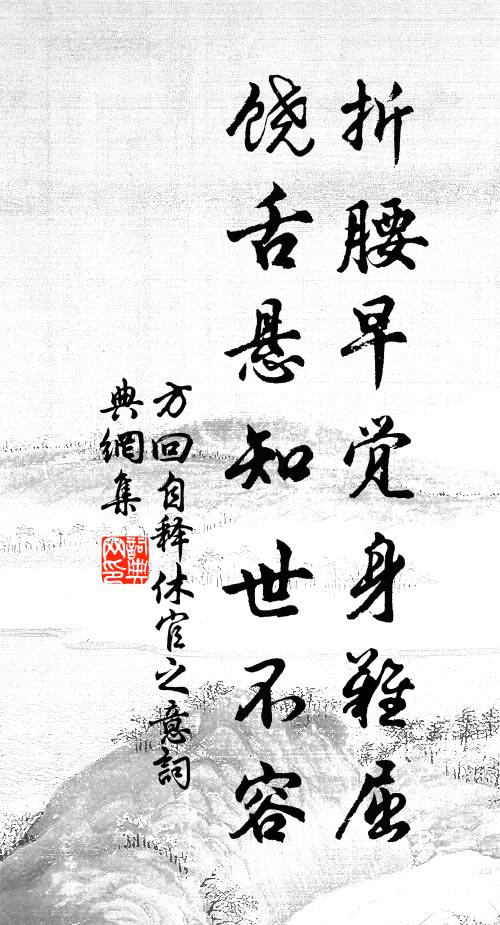 折腰早觉身难屈
饶舌悬知世不容
方回自释休官之意詞
典網集
詞典
网印